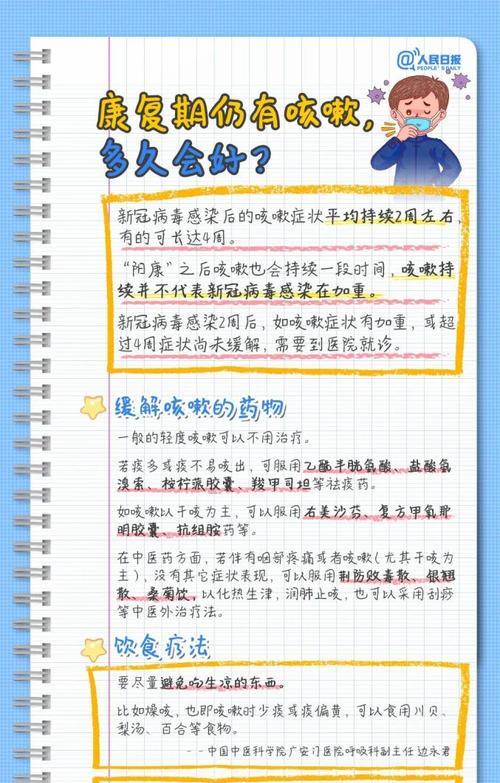 @人民日报
PEOPLE'S DAILY
康复期仍有咳嗽，
多久会好？
新冠病毒感染后的咳嗽症状平均持续2周左右，
有的可长达4周。
“阳康”之后咳嗽也会持续一段时间，咳嗽持
续并不代表新冠病毒感染在加重。
新冠病毒感染2周后，如咳嗽症状有加重，或超
过4周症状尚未缓解，需要到医院就诊。
缓解咳嗽的药物
一般的轻度咳嗽可以不用治疗。
若痰多或痰不易咳出，可服用乙酰半胱氨酸、盐酸氨
溴索、桉柠蒎胶囊、羧甲司坦等祛痰药。
如咳嗽以干咳为主，可以服用右美沙芬、复方甲氧那
明胶囊、抗组胺药等。
在中医药方面，若伴有咽部疼痛或者咳嗽（尤其干咳为
主），没有其它症状表现，可以服用荆防败毒散、银翘
散、桑菊饮，以化热生津，润肺止咳，也可以采用刮痧
等中医外治疗法。
饮食疗法
要尽量避免吃生凉的东西。
比如燥咳，也即咳嗽时少痰或痰偏黄，可以食用川贝、
梨汤、百合等食物。
--中国中医科学院广安门医院呼吸科副主任 边永君